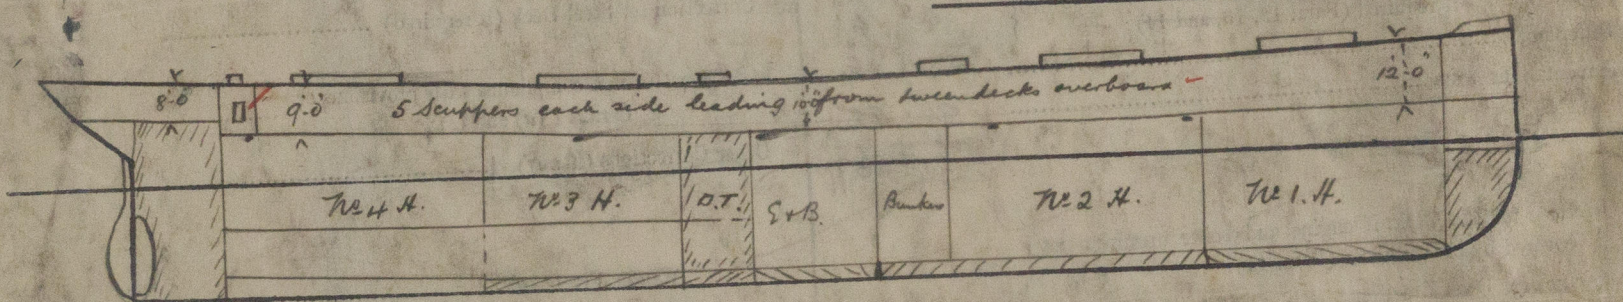 8'-0"
9'-0"
5 Scuppers each side leading from tweendecks overboard
10'-0"
12'-0"
No 4 H.
No 3 H.
D.T.
E+B.
Bunker
No 2 H.
No 1. H.